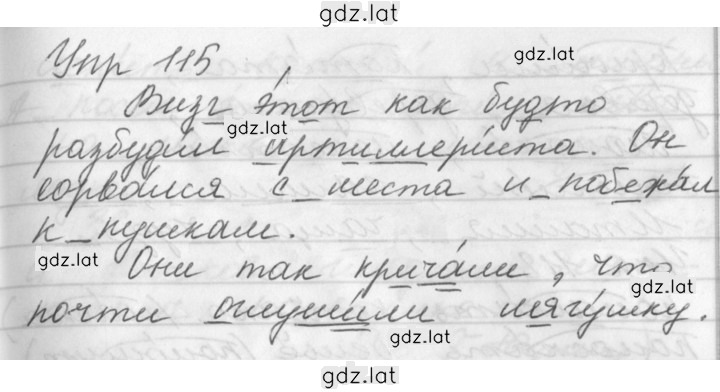 gdz.lat
Упр 115
gdz.lat
Визг э́тот как будто
gdz.lat
разбудил артиллери́ста. Он
сорва́лся с_места и_побежа́л
к_пушкам.
gdz.lat
Они так крича́ли, что
gdz.lat
почти оглуши́ли лягу́шку.
gdz.lat
gdz.lat